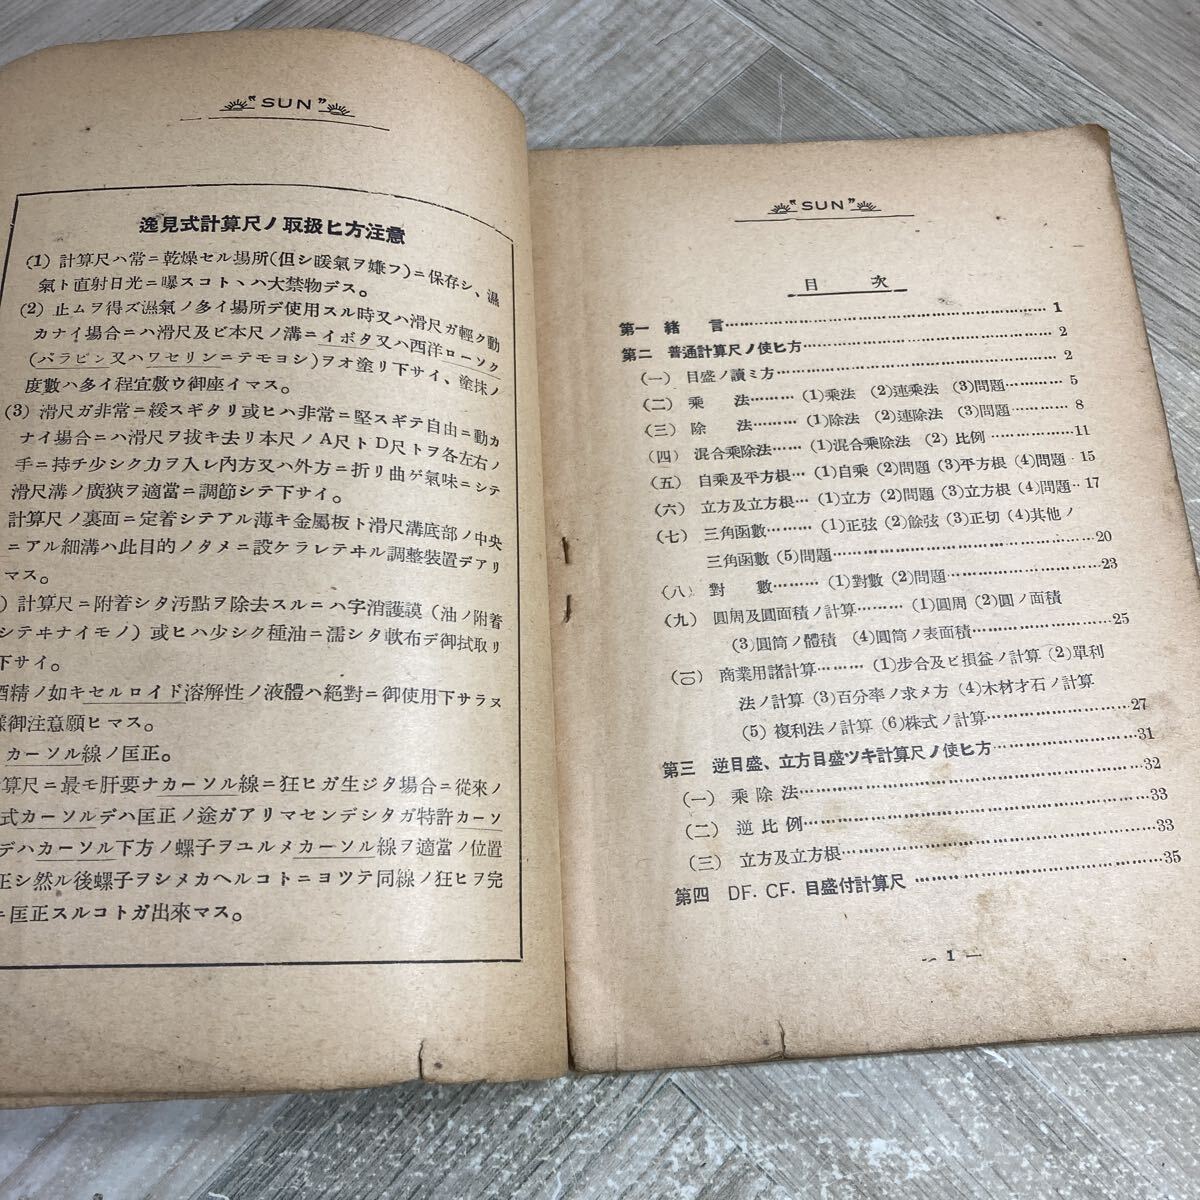 "SUN"
逸見式計算尺ノ取扱ヒ方注意
(1) 計算尺ハ常ニ乾燥セル場所(但シ暖氣ヲ嫌フ)ニ保存シ、濕
氣ト直射日光ニ曝スコトヽハ大禁物デス。
(2) 止ムヲ得ズ濕氣ノ多イ場所デ使用スル時又ハ滑尺ガ輕ク動
カナイ場合ニハ滑尺及ビ本尺ノ溝ニイボタ又ハ西洋ローソク
(パラピン又ハワセリンニテモヨシ)ヲオ塗リ下サイ、塗抹ノ
度數ハ多イ程宜敷ウ御座イマス。
(3) 滑尺ガ非常ニ緩スギタリ或ヒハ非常ニ堅スギテ自由ニ動カ
ナイ場合ニハ滑尺ヲ拔キ去リ本尺ノA尺トD尺トヲ各左右ノ
手ニ持チ少シク力ヲ入レ內方又ハ外方ニ折リ曲ゲ氣味ニシテ
滑尺溝ノ廣狹ヲ適當ニ調節シテ下サイ。
計算尺ノ裏面ニ定着シテアル薄キ金屬板ト滑尺溝底部ノ中央
ニアル細溝ハ此目的ノタメニ設ケラレテヰル調整裝置デアリ
マス。
) 計算尺ニ附着シタ汚點ヲ除去スルニハ字消護謨(油ノ附着
シテヰナイモノ)或ヒハ少シク種油ニ濡シタ軟布デ御拭取リ
下サイ。
酒精ノ如キセルロイド溶解性ノ液體ハ絕對ニ御使用下サラヌ
樣御注意願ヒマス。
カーソル線ノ匡正。
算尺ニ最モ肝要ナカーソル線ニ狂ヒガ生ジタ場合ニ從來ノ
式カーソルデハ匡正ノ途ガアリマセンデシタガ特許カーソ
デハカーソル下方ノ螺子ヲユルメカーソル線ヲ適當ノ位置
正シ然ル後螺子ヲシメカヘルコトニヨツテ同線ノ狂ヒヲ完
ニ匡正スルコトガ出來マス。
"SUN"
目次
第一 緒言……1
第二 普通計算尺ノ使ヒ方……2
(一) 目盛ノ讀ミ方……2
(二) 乘法……(1)乘法 (2)連乘法 (3)問題……5
(三) 除法……(1)除法 (2)連除法 (3)問題……8
(四) 混合乘除法……(1)混合乘除法 (2)比例……11
(五) 自乘及平方根…(1)自乘 (2)問題 (3)平方根 (4)問題‥15
(六) 立方及立方根…(1)立方 (2)問題 (3)立方根 (4)問題‥17
(七) 三角函數……(1)正弦 (2)餘弦 (3)正切 (4)其他ノ
三角函數 (5)問題……20
(八) 對數……(1)對數 (2)問題……23
(九) 圓周及圓面積ノ計算……(1)圓周 (2)圓ノ面積
(3)圓筒ノ體積 (4)圓筒ノ表面積……25
(一〇) 商業用諸計算……(1)步合及ビ損益ノ計算 (2)單利
法ノ計算 (3)百分率ノ求メ方 (4)木材才石ノ計算
(5)複利法ノ計算 (6)株式ノ計算……27
第三 逆目盛、立方目盛ツキ計算尺ノ使ヒ方……31
(一) 乘除法……32
(二) 逆比例……33
(三) 立方及立方根……33
第四 DF. CF. 目盛付計算尺……35
— 1 —